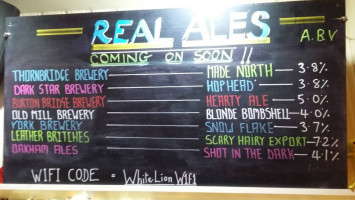 REAL ALES
A.B.V
COMING ON SOON !!
THORNBRIDGE BREWERY MADE NORTH — 3.8%
DARK STAR BREWERY HOPHEAD — 3.8%
BURTON BRIDGE BREWERY HEARTY ALE — 5.0%
OLD MILL BREWERY BLONDE BOMBSHELL — 4.0%
YORK BREWERY SNOW FLAKE — 3.7%
LEATHER BRITCHES SCARY HAIRY EXPORT — 7.2%
OAKHAM ALES SHOT IN THE DARK — 4.1%
WIFI CODE = WhiteLionWIFI